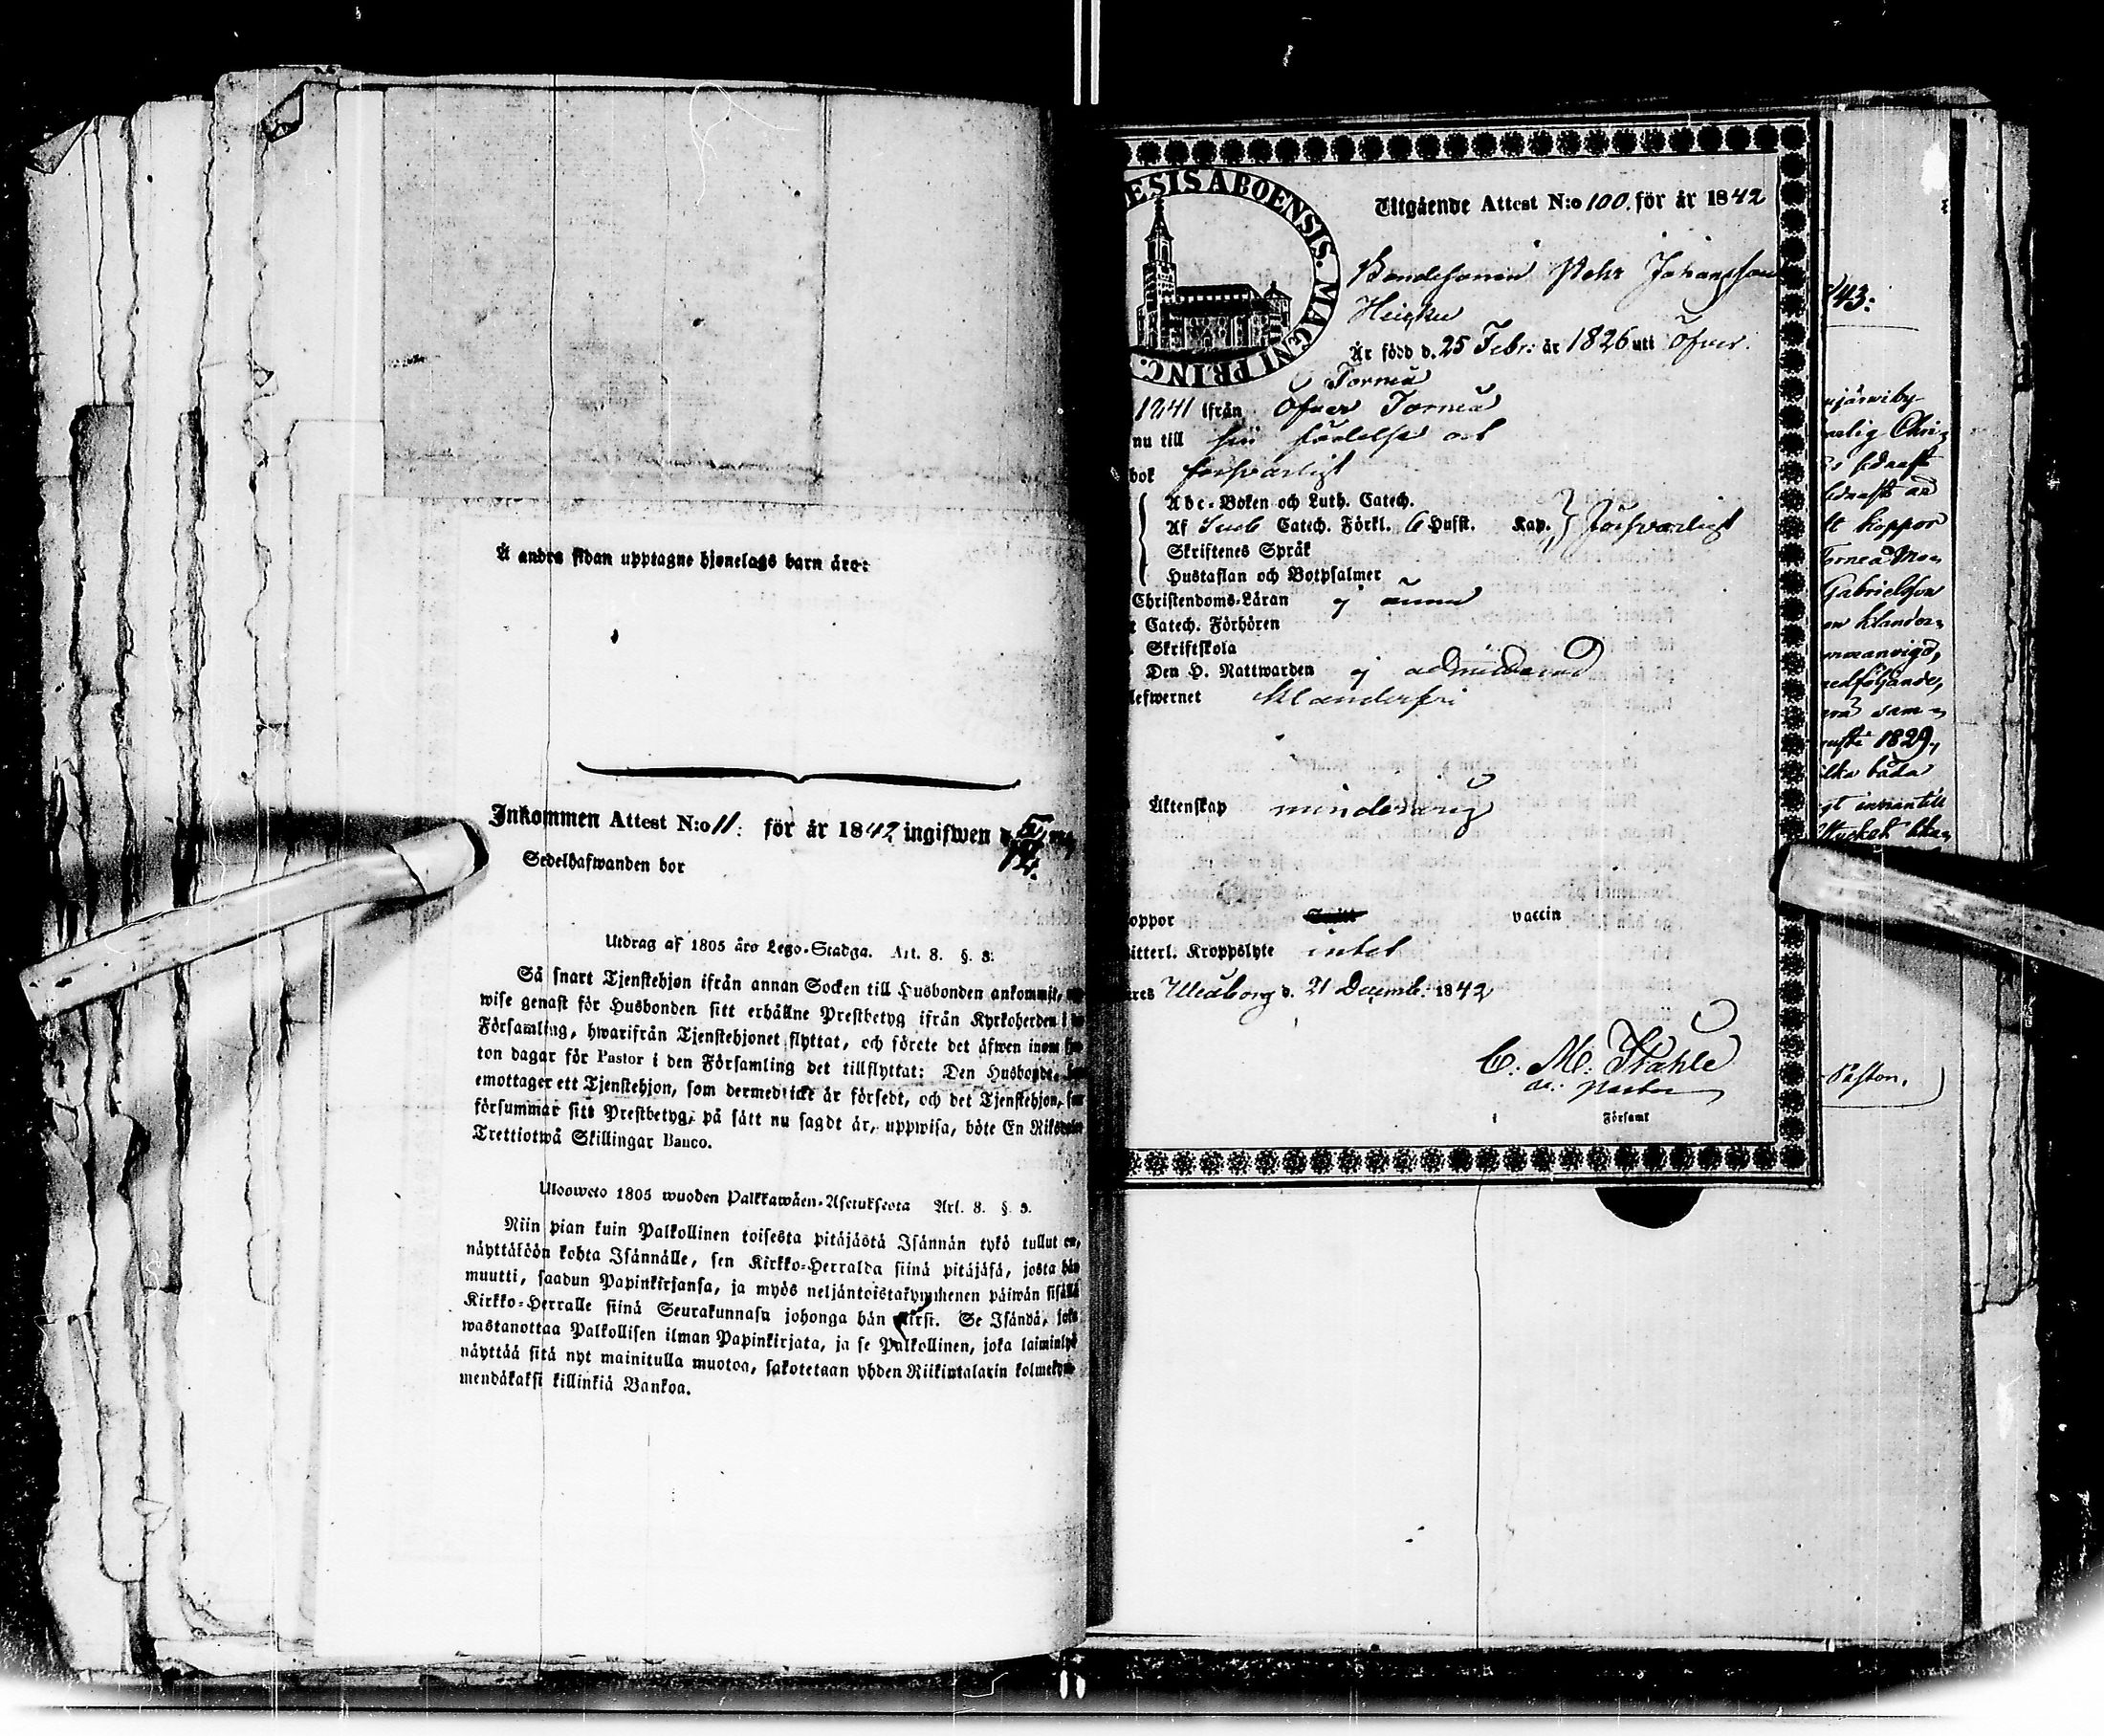 Å andra sidan upptagne hjonelags barn äro:
Inkommen Attest N:o 11: för år 1842 ingifwen
Sedelhafwanden bor
Utdrag af 1805 års Lego-Stadga. Art. 8. §. 3.
Så snart Tjenstehjon ifrån annan Socken till Husbonden ankommit,
wise genast för Husbonden sitt erhållne Prestbetyg ifrån Kyrkoherden i
Församling, hwarifrån Tjenstehjonet flyttat, och förete det äfwen inom
ton dagar för Pastor i den Församling det tillflyttat: Den Husbonde,
emottager ett Tjenstehjon, som dermed icke är försedt, och det Tjenstehjon,
försummar sitt Prestbetyg, på sätt nu sagdt är, uppwisa, böte En
Trettiotwå Skillingar Banco.
Ulosweto 1805 wuoden Palkkawäen-Asetuksesta Art. 8. §. 3.
Niin pian kuin Palkollinen toisesta pitäjästä Isännän tykö tullut on,
näyttäköön kohta Isännälle, sen Kirkko-Herralda siinä pitäjäsä, josta hän
muutti, saadun Papinkirjansa, ja myös neljäntoistakymmenen päiwän sisällä
Kirkko-Herralle siinä Seurakunnasa johonga hän siirsi. Se Isändä, joka
wastanottaa Palkollisen ilman Papinkirjata, ja se Palkollinen, joka laiminlyö
näyttää sitä nyt mainitulla muotoa, sakotetaan yhden Riikintalarin
mendäkaksi killinkiä Bankoa.
ESIS ABOENSIS. MAGNI PRINC.
Utgående Attest N:o 100. för år 1842
Bondesonen Pehr Johansson
Heicku
Är född d. 25 Febr: år 1826 uti Öfver.
Torneå
1841 ifrån Öfver Torneå
nu till sin födelse ort
bok försvarligt
Abc-Boken och Luth. Catech.
Af Sveb Catech. Förkl. 6 Hufst. Kap. } försvarligt
Skriftenes Språk
Hustaflan och Botpsalmer
Christendoms-Läran ej ännu
Catech. Förhören
Skriftskola
Den H. Nattwarden ej admitterad
lefwernet Klanderfri
Äktenskap minderårig
oppor vaccin
itterl. Kroppslyte intet
Uleåborg d. 21 Decemb. 1842
C. M. Stahle
Församl
843:
järwiby
Gabrielsson
medföljande,
1829,
båda
Pastor.